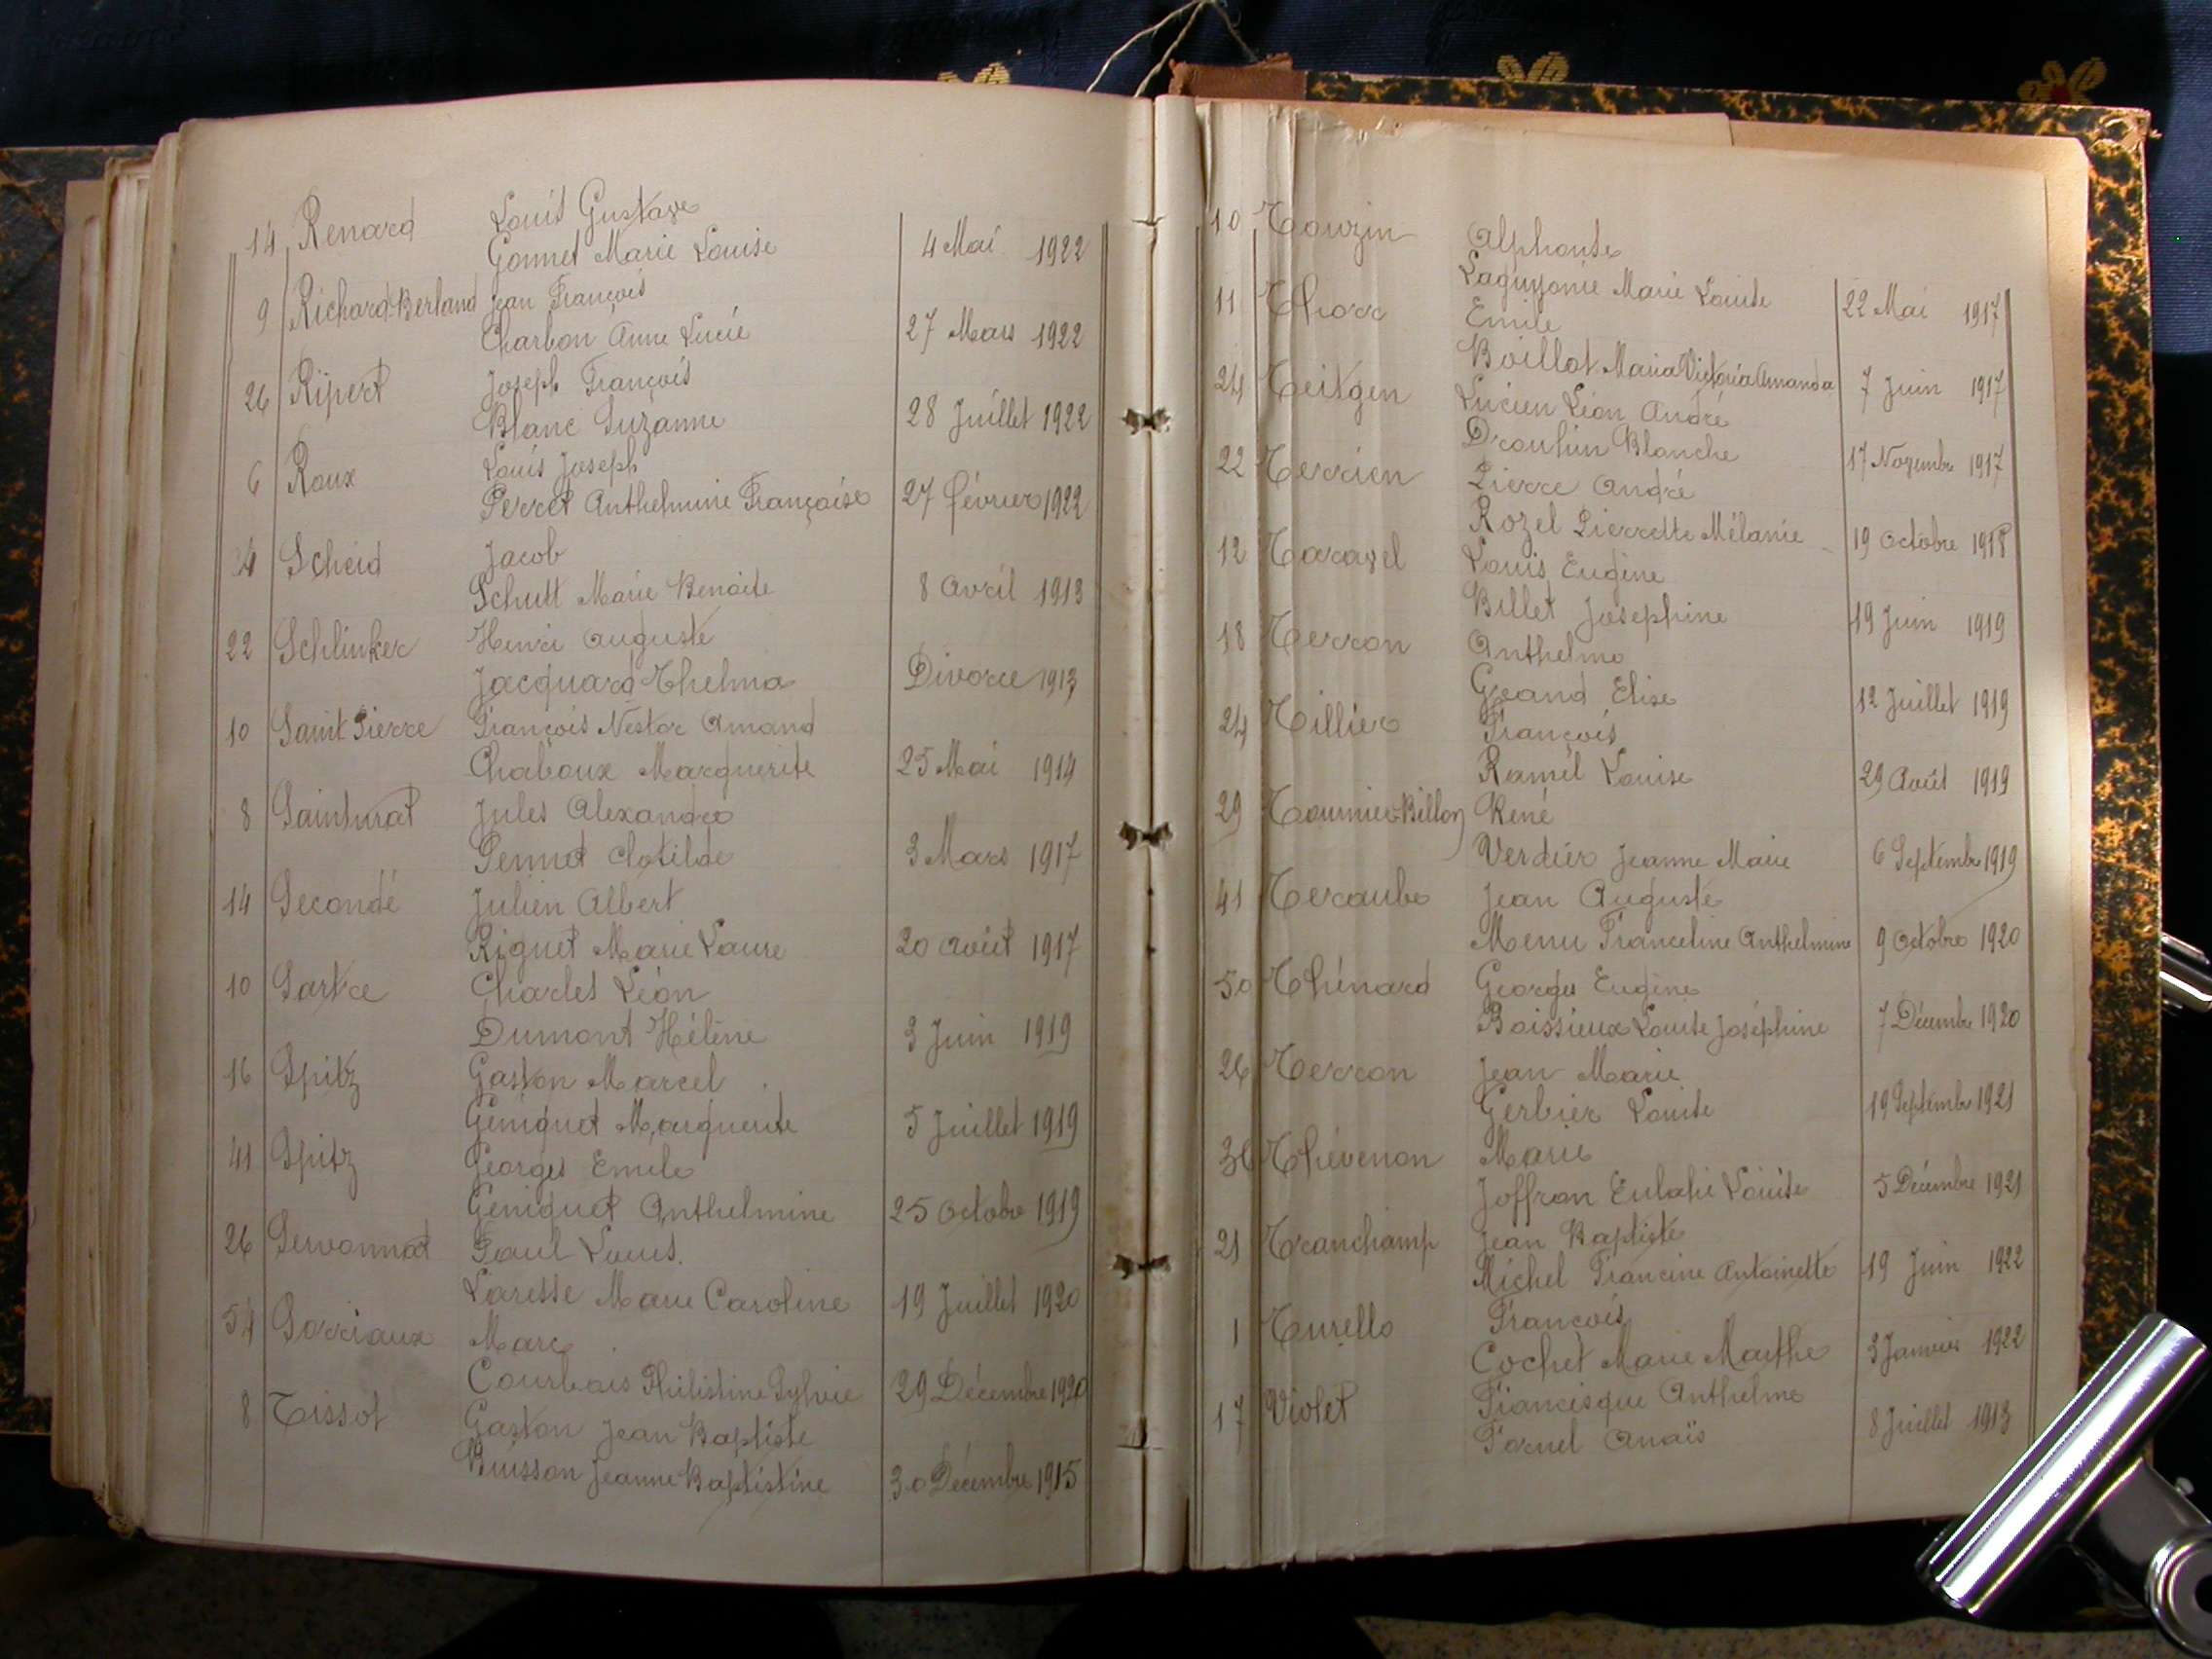 14 Renard Louis Gustave
Gonnet Marie Louise 4 Mai 1922
9 Richard-Berland Jean François
Charbon Anne Lucie 27 Mars 1922
26 Ripert Joseph François
Blanc Suzanne 28 Juillet 1922
6 Roux Louis Joseph
Perret Anthelmine Françoise 27 février 1922
4 Scheid Jacob
Schutt Marie Benoite 8 Avril 1913
22 Schlinker Henri Auguste
Jacquard Thelma Divorce 1913
10 Saint Pierre François Nestor Amand
Chaboux Marguerite 25 Mai 1914
8 Sainturat Jules Alexandre
Pennet Clotilde 3 Mars 1917
14 Secondé Julien Albert
Riguet Marie Laure 20 Août 1917
10 Sartre Charles Léon
Dumont Hélène 3 Juin 1919
16 Spitz Gaston Marcel
Géniquet Marguerite 5 Juillet 1919
41 Spitz Georges Emile
Géniquet Anthelmine 25 Octobre 1919
26 Servonnat Paul
Laresse Marie Caroline 19 Juillet 1920
54 Sorriaux Marc
Courbais Philistine Sylvie 29 Décembre 1920
8 Tissot Gaston Jean Baptiste
Buisson Jeanne Baptistine 30 Décembre 1915
10 Touzin Alphonse
Laguyonie Marie Louise 22 Mai 1917
11 Thorr Emile
Boillot Maria Victoria Amanda 7 Juin 1917
24 Teitgen Lucien Léon André
Drouhin Blanche 17 Novembre 1917
22 Terrien Pierre André
Rozel Pierrette Mélanie 19 Octobre 1918
12 Taravel Louis Eugène
Billet Joséphine 19 Juin 1919
18 Terron Anthelme
Grand Elise 12 Juillet 1919
24 Tillier François
Ramel Louise 29 Août 1919
29 Tournier-Billon René
Verdier Jeanne Marie 6 Septembre 1919
41 Teraube Jean Auguste
Menu Franceline Anthelmine 9 Octobre 1920
50 Thénard Georges Eugène
Boissieux Louise Joséphine 7 Décembre 1920
26 Terron Jean Marie
Gerbier Louise 19 Septembre 1921
36 Thévenon Marie
Joffron Eulalie Louise 5 Décembre 1921
21 Tranchamp Jean Baptiste
Michel Francine Antoinette 19 Juin 1922
1 Turello François
Cochet Marie Marthe 3 Janvier 1922
17 Violet Francisque Anthelme
Fornel Anaïs 8 Juillet 1913